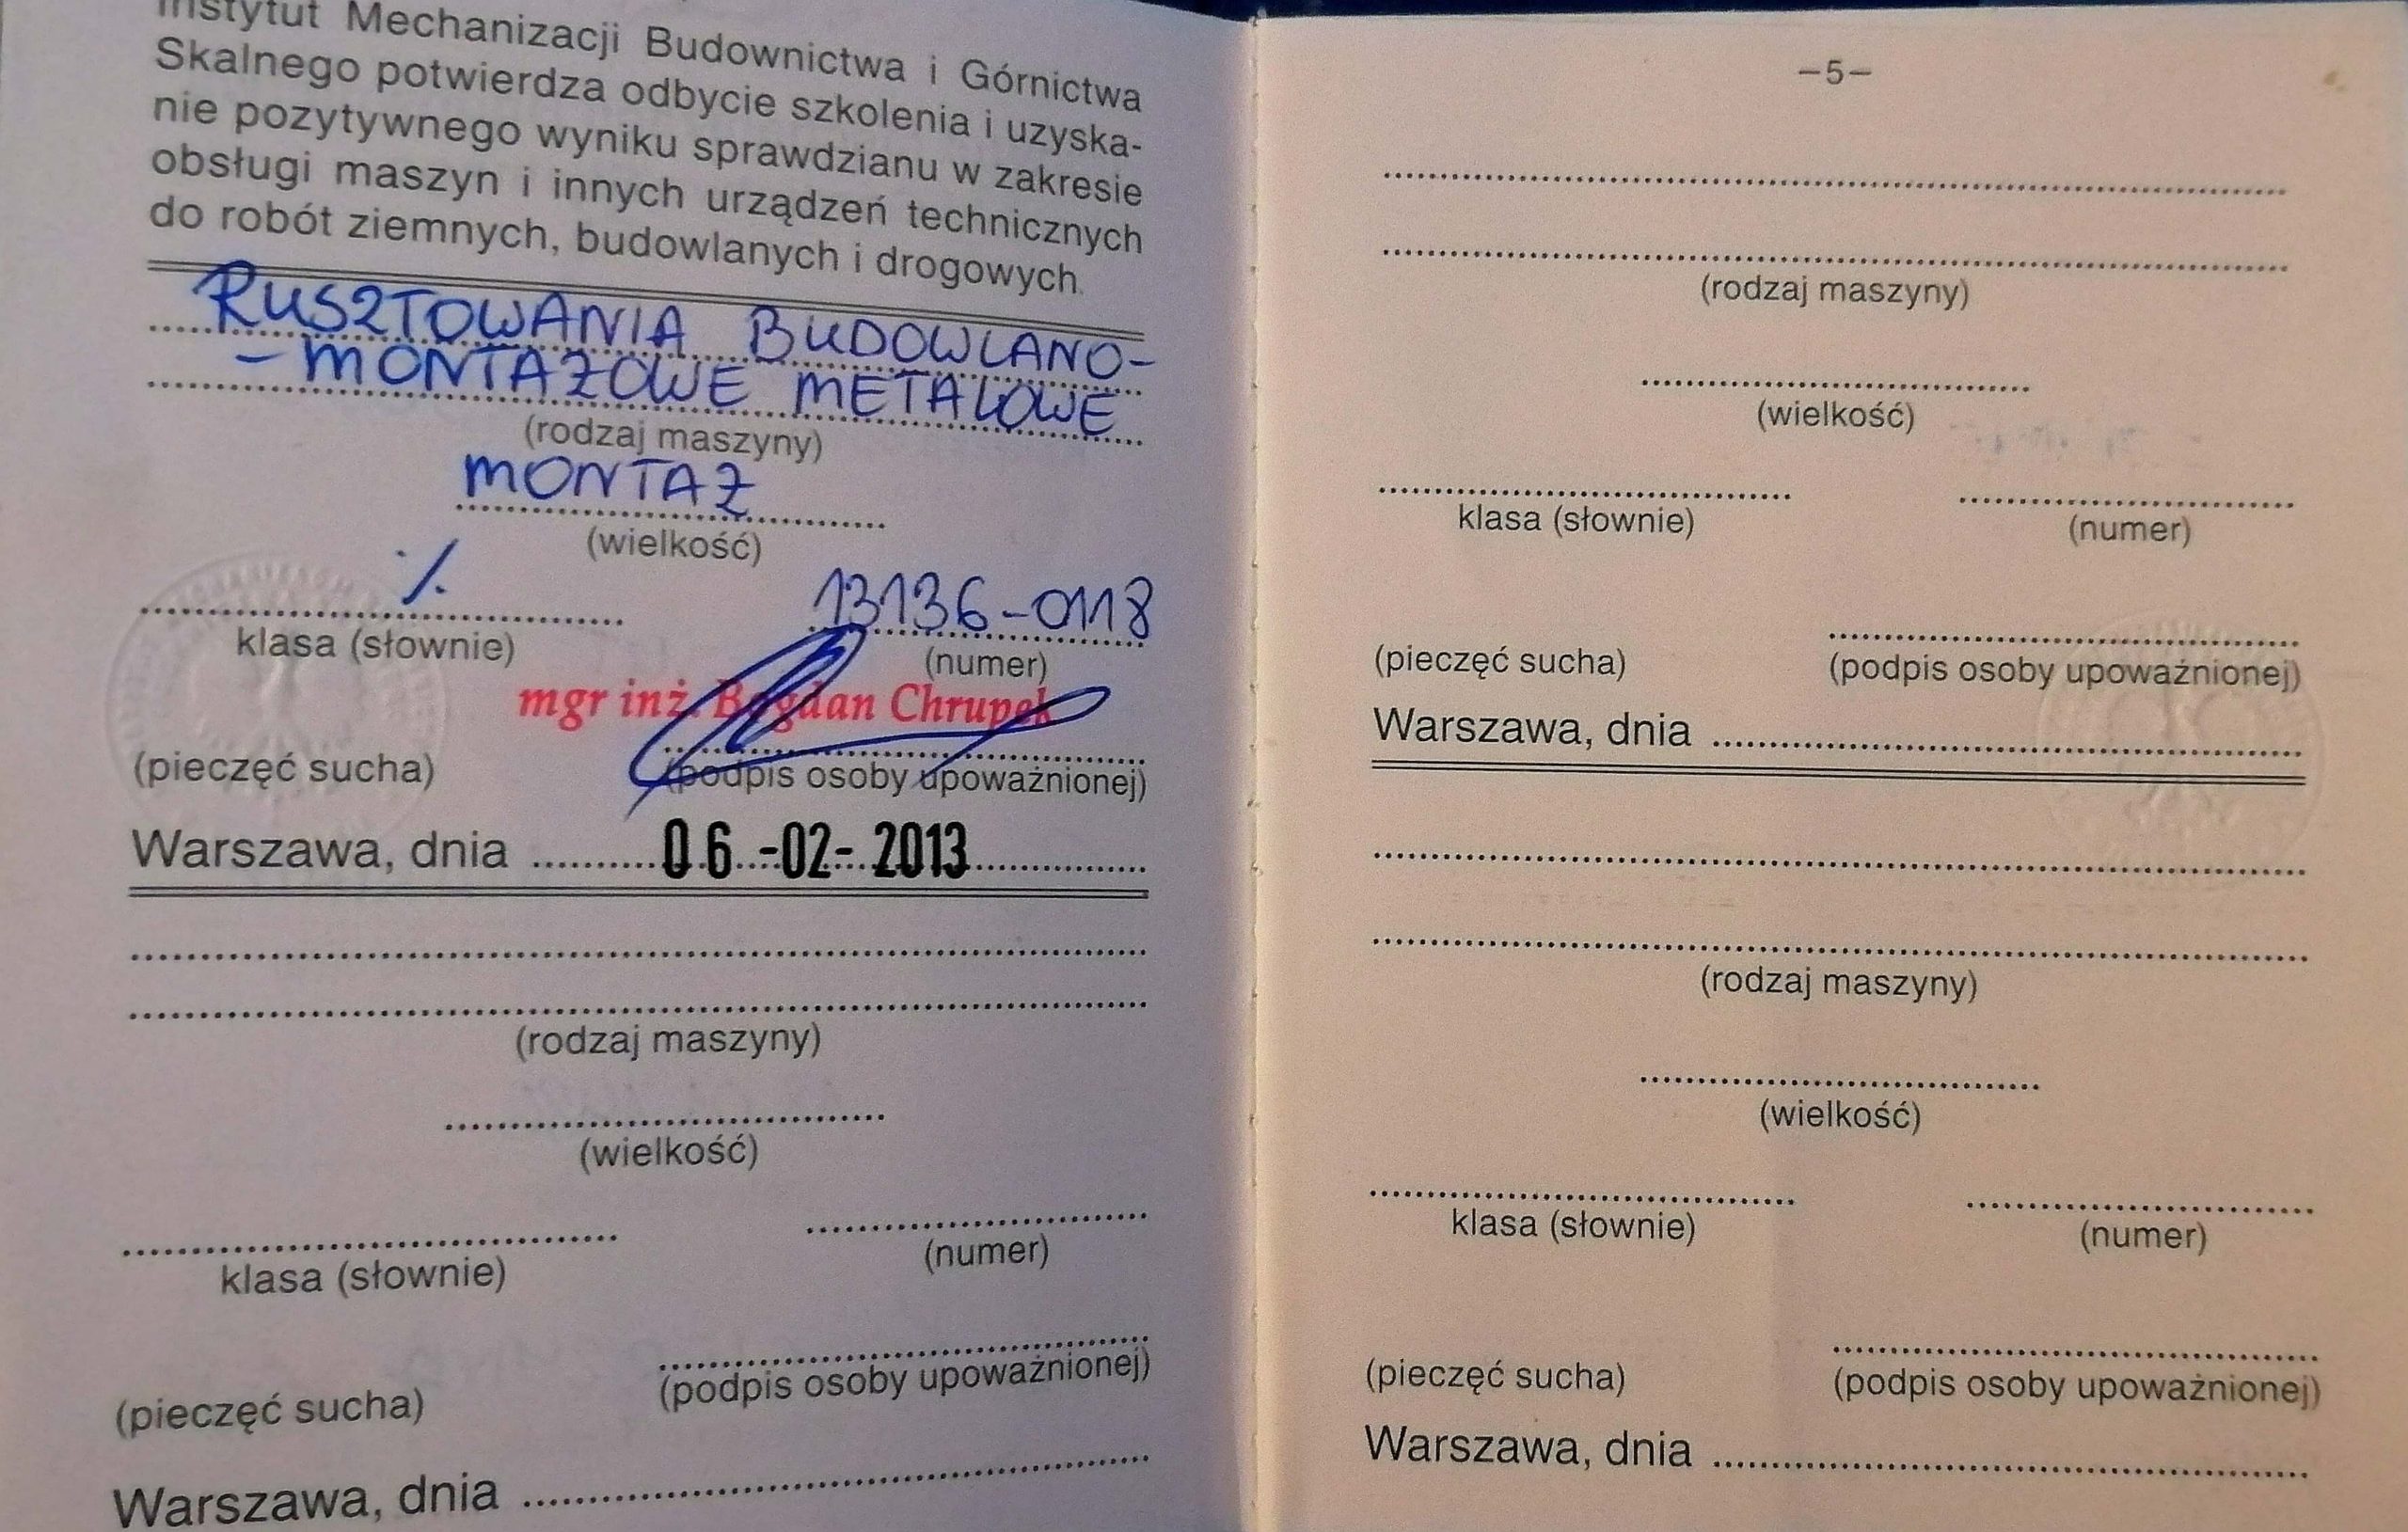 Instytut Mechanizacji Budownictwa i Górnictwa
Skalnego potwierdza odbycie szkolenia i uzyska-
nie pozytywnego wyniku sprawdzianu w zakresie
obsługi maszyn i innych urządzeń technicznych
do robót ziemnych, budowlanych i drogowych.
RUSZTOWANIA BUDOWLANO-
-MONTAŻOWE METALOWE
(rodzaj maszyny)
MONTAŻ
(wielkość)
./. 13136-0118
klasa (słownie) (numer)
mgr inż. Bogdan Chrupek
(pieczęć sucha) (podpis osoby upoważnionej)
Warszawa, dnia 06-02-2013
(rodzaj maszyny)
(wielkość)
klasa (słownie) (numer)
(pieczęć sucha) (podpis osoby upoważnionej)
Warszawa, dnia
–5–
(rodzaj maszyny)
(wielkość)
klasa (słownie) (numer)
(pieczęć sucha) (podpis osoby upoważnionej)
Warszawa, dnia
(rodzaj maszyny)
(wielkość)
klasa (słownie) (numer)
(pieczęć sucha) (podpis osoby upoważnionej)
Warszawa, dnia